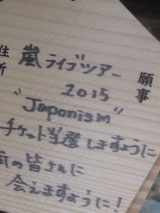 願事
住所
嵐ライブツアー
2015
"Japonism"
チケット当選しますように
気の皆さまに
会えますように!